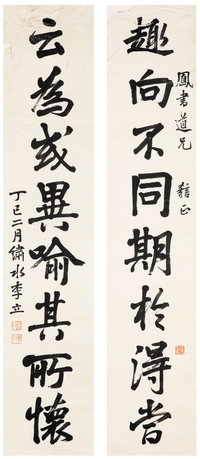 趣向不同期於得當
鳳書道兄 正
云為或異喻其所懷
丁巳二月繡水李立